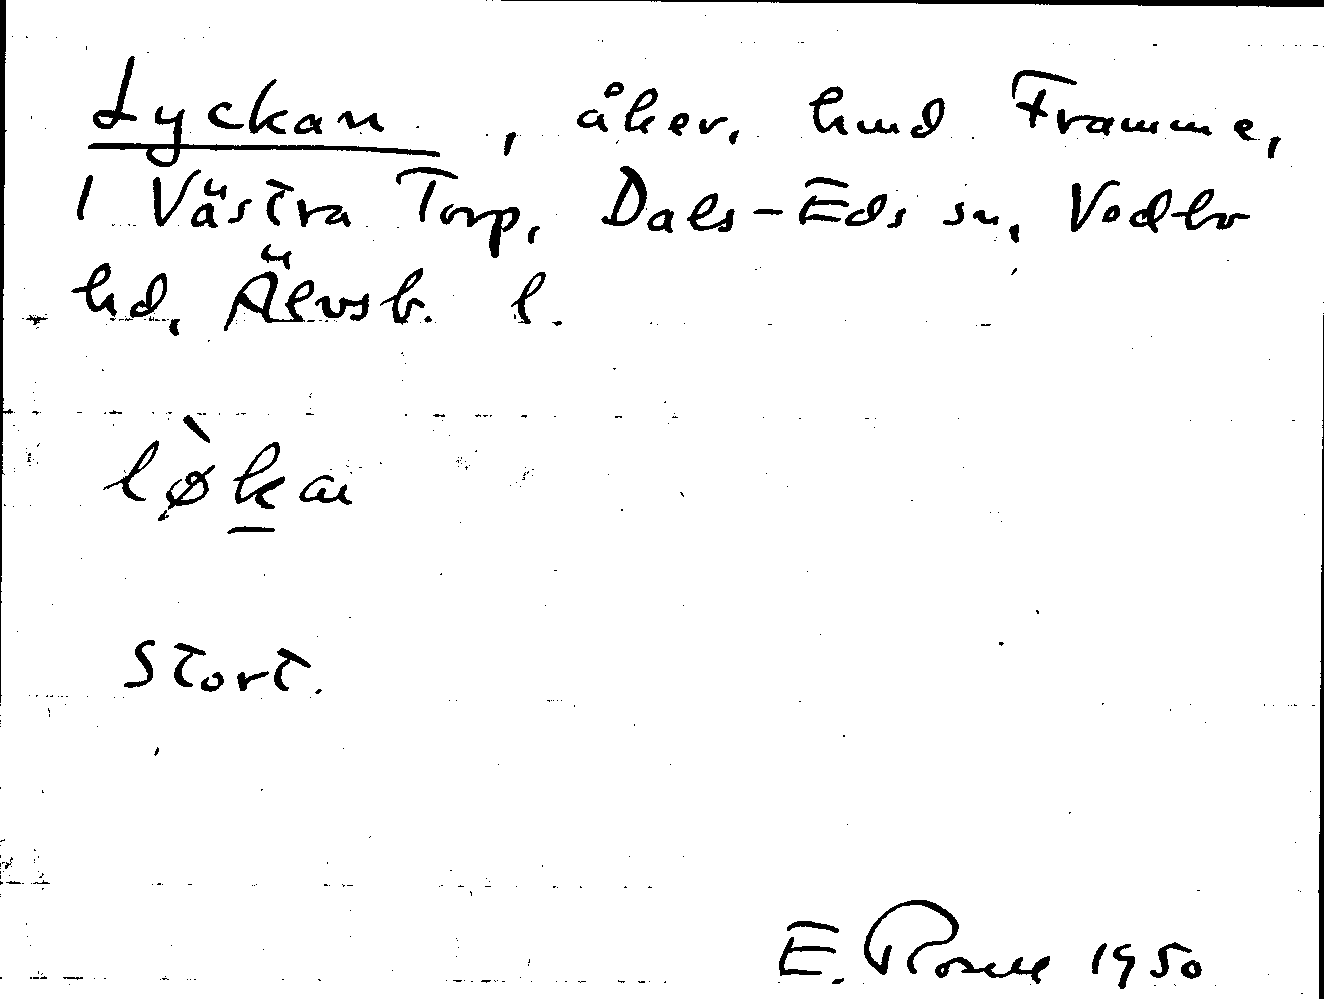 Lyckan, åker, hmd Framme,
1 Västra Torp, Dals-Eds sn, Vedbo
hd, Älvsb. l.
lø̀kan
Stort.
E. Rosell 1950